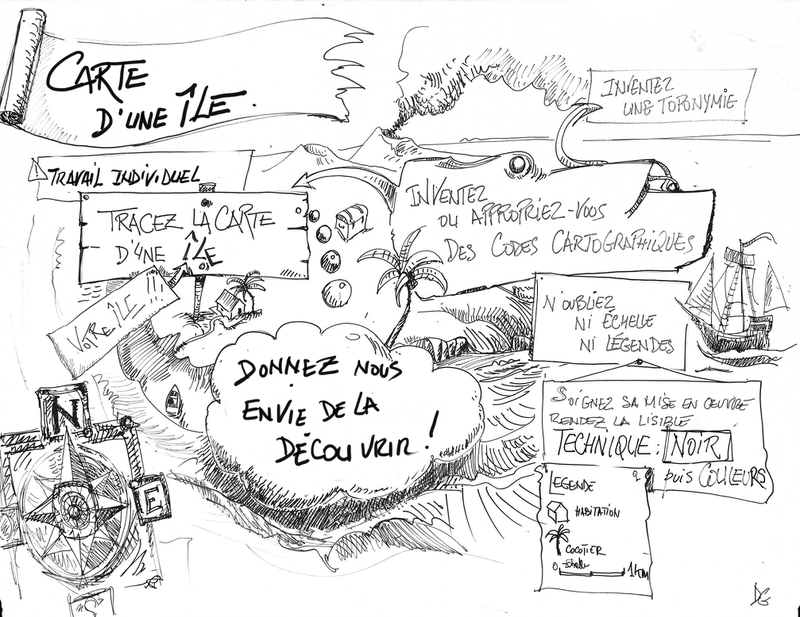 CARTE
D'UNE ÎLE.
INVENTEZ
UNE TOPONYMIE
TRAVAIL INDIVIDUEL
TRACEZ LA CARTE
D'UNE ÎLE
INVENTEZ
OU APPROPRIEZ-VOUS
DES CODES CARTOGRAPHIQUES
VOTRE ÎLE !!!
N'OUBLIEZ
NI ÉCHELLE
NI LÉGENDES
DONNEZ NOUS
ENVIE DE LA
DÉCOUVRIR !
SOIGNEZ SA MISE EN ŒUVRE
RENDEZ LA LISIBLE
TECHNIQUE : NOIR
puis COULEURS
LEGENDE
HABITATION
COCOTIER
Echelle
0 1KM
N
E
"S"
DG